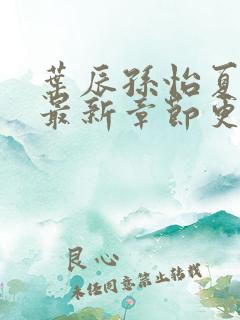 叶辰孙怡夏
最新章节更
良心
未经同意禁止转载